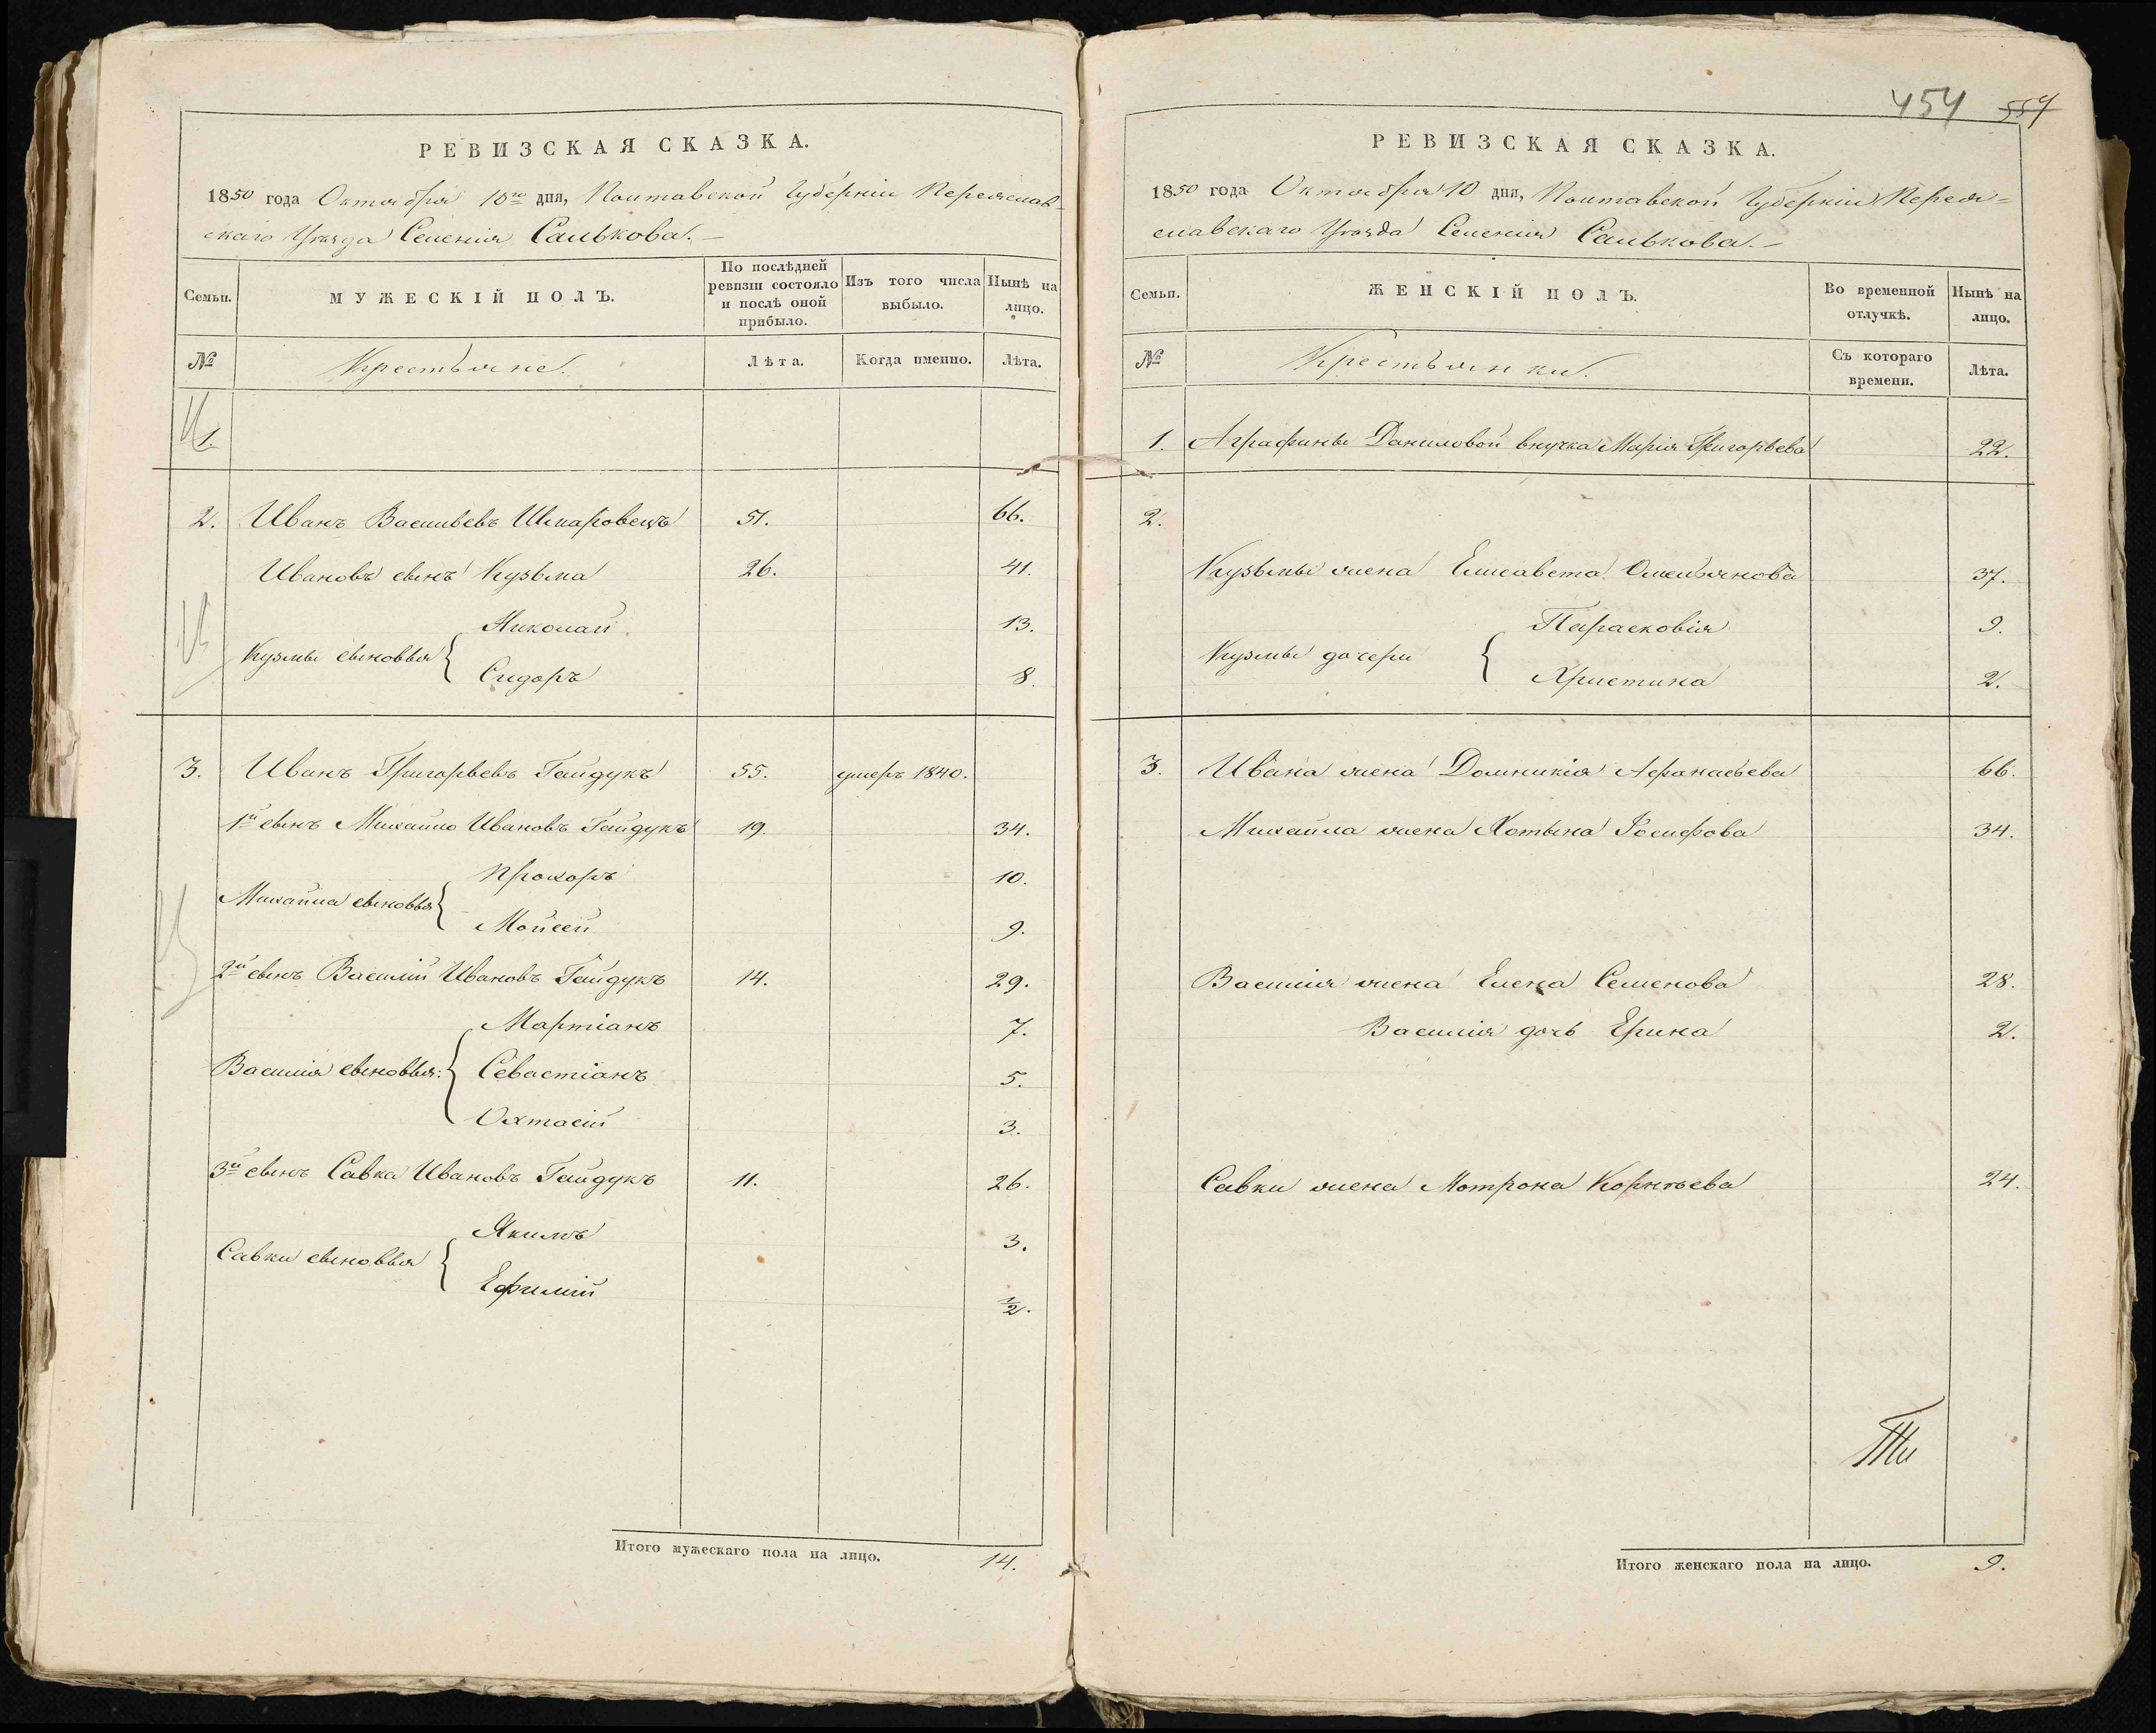 454 554
РЕВИЗСКАЯ СКАЗКА.
1850 года Октября 10го дня, Полтавской Губерніи Переяслав-
скаго Уѣзда Селенія Салькова.
Семьи.
МУЖЕСКІЙ ПОЛЪ.
По послѣдней ревизіи состояло и послѣ оной прибыло.
Изъ того числа выбыло.
Нынѣ на лицо.
№ Крестьяне. Лѣта. Когда именно. Лѣта.
1.
2. Иванъ Васильевъ Шкаровецъ 51. 66.
Ивановъ сынъ Кузьма 26. 41.
Николай 13.
Кузмы сыновья {
Сидоръ 8.
3. Иванъ Григорьевъ Гайдукъ 55. умеръ 1840.
1й сынъ Михайло Ивановъ Гайдукъ 19. 34.
Прохоръ 10.
Михайла сыновья {
Мойсей 9.
2й сынъ Василій Ивановъ Гайдукъ 14. 29.
Мартіанъ 7.
Василія сыновья: { Севастіанъ 5.
Охтасій 3.
3й сынъ Савка Ивановъ Гайдукъ 11. 26.
Якимъ 3.
Савки сыновья {
Ефимій ½.
Итого мужескаго пола на лицо. 14.
РЕВИЗСКАЯ СКАЗКА.
1850 года Октября 10 дня, Полтавской Губерніи Перея=
славскаго Уѣзда Селенія Салькова.
Семьи.
ЖЕНСКІЙ ПОЛЪ.
Во временной отлучкѣ.
Нынѣ на лицо.
№ Крестьянки. Съ котораго времени. Лѣта.
1. Аграфины Даниловой внучка Марія Григорьева 22.
2.
Кузьмы жена Елисавета Омельянова 37.
Парасковія 9.
Кузмы дочери {
Христина 2.
3. Ивана жена Домникія Афанасьева 66.
Михайла жена Хотына Іосифова 34.
Василія жена Елена Семенова 28.
Василія дочь Ерина 2.
Савки жена Мотрона Корнѣева 24.
Итого женскаго пола на лицо. 9.